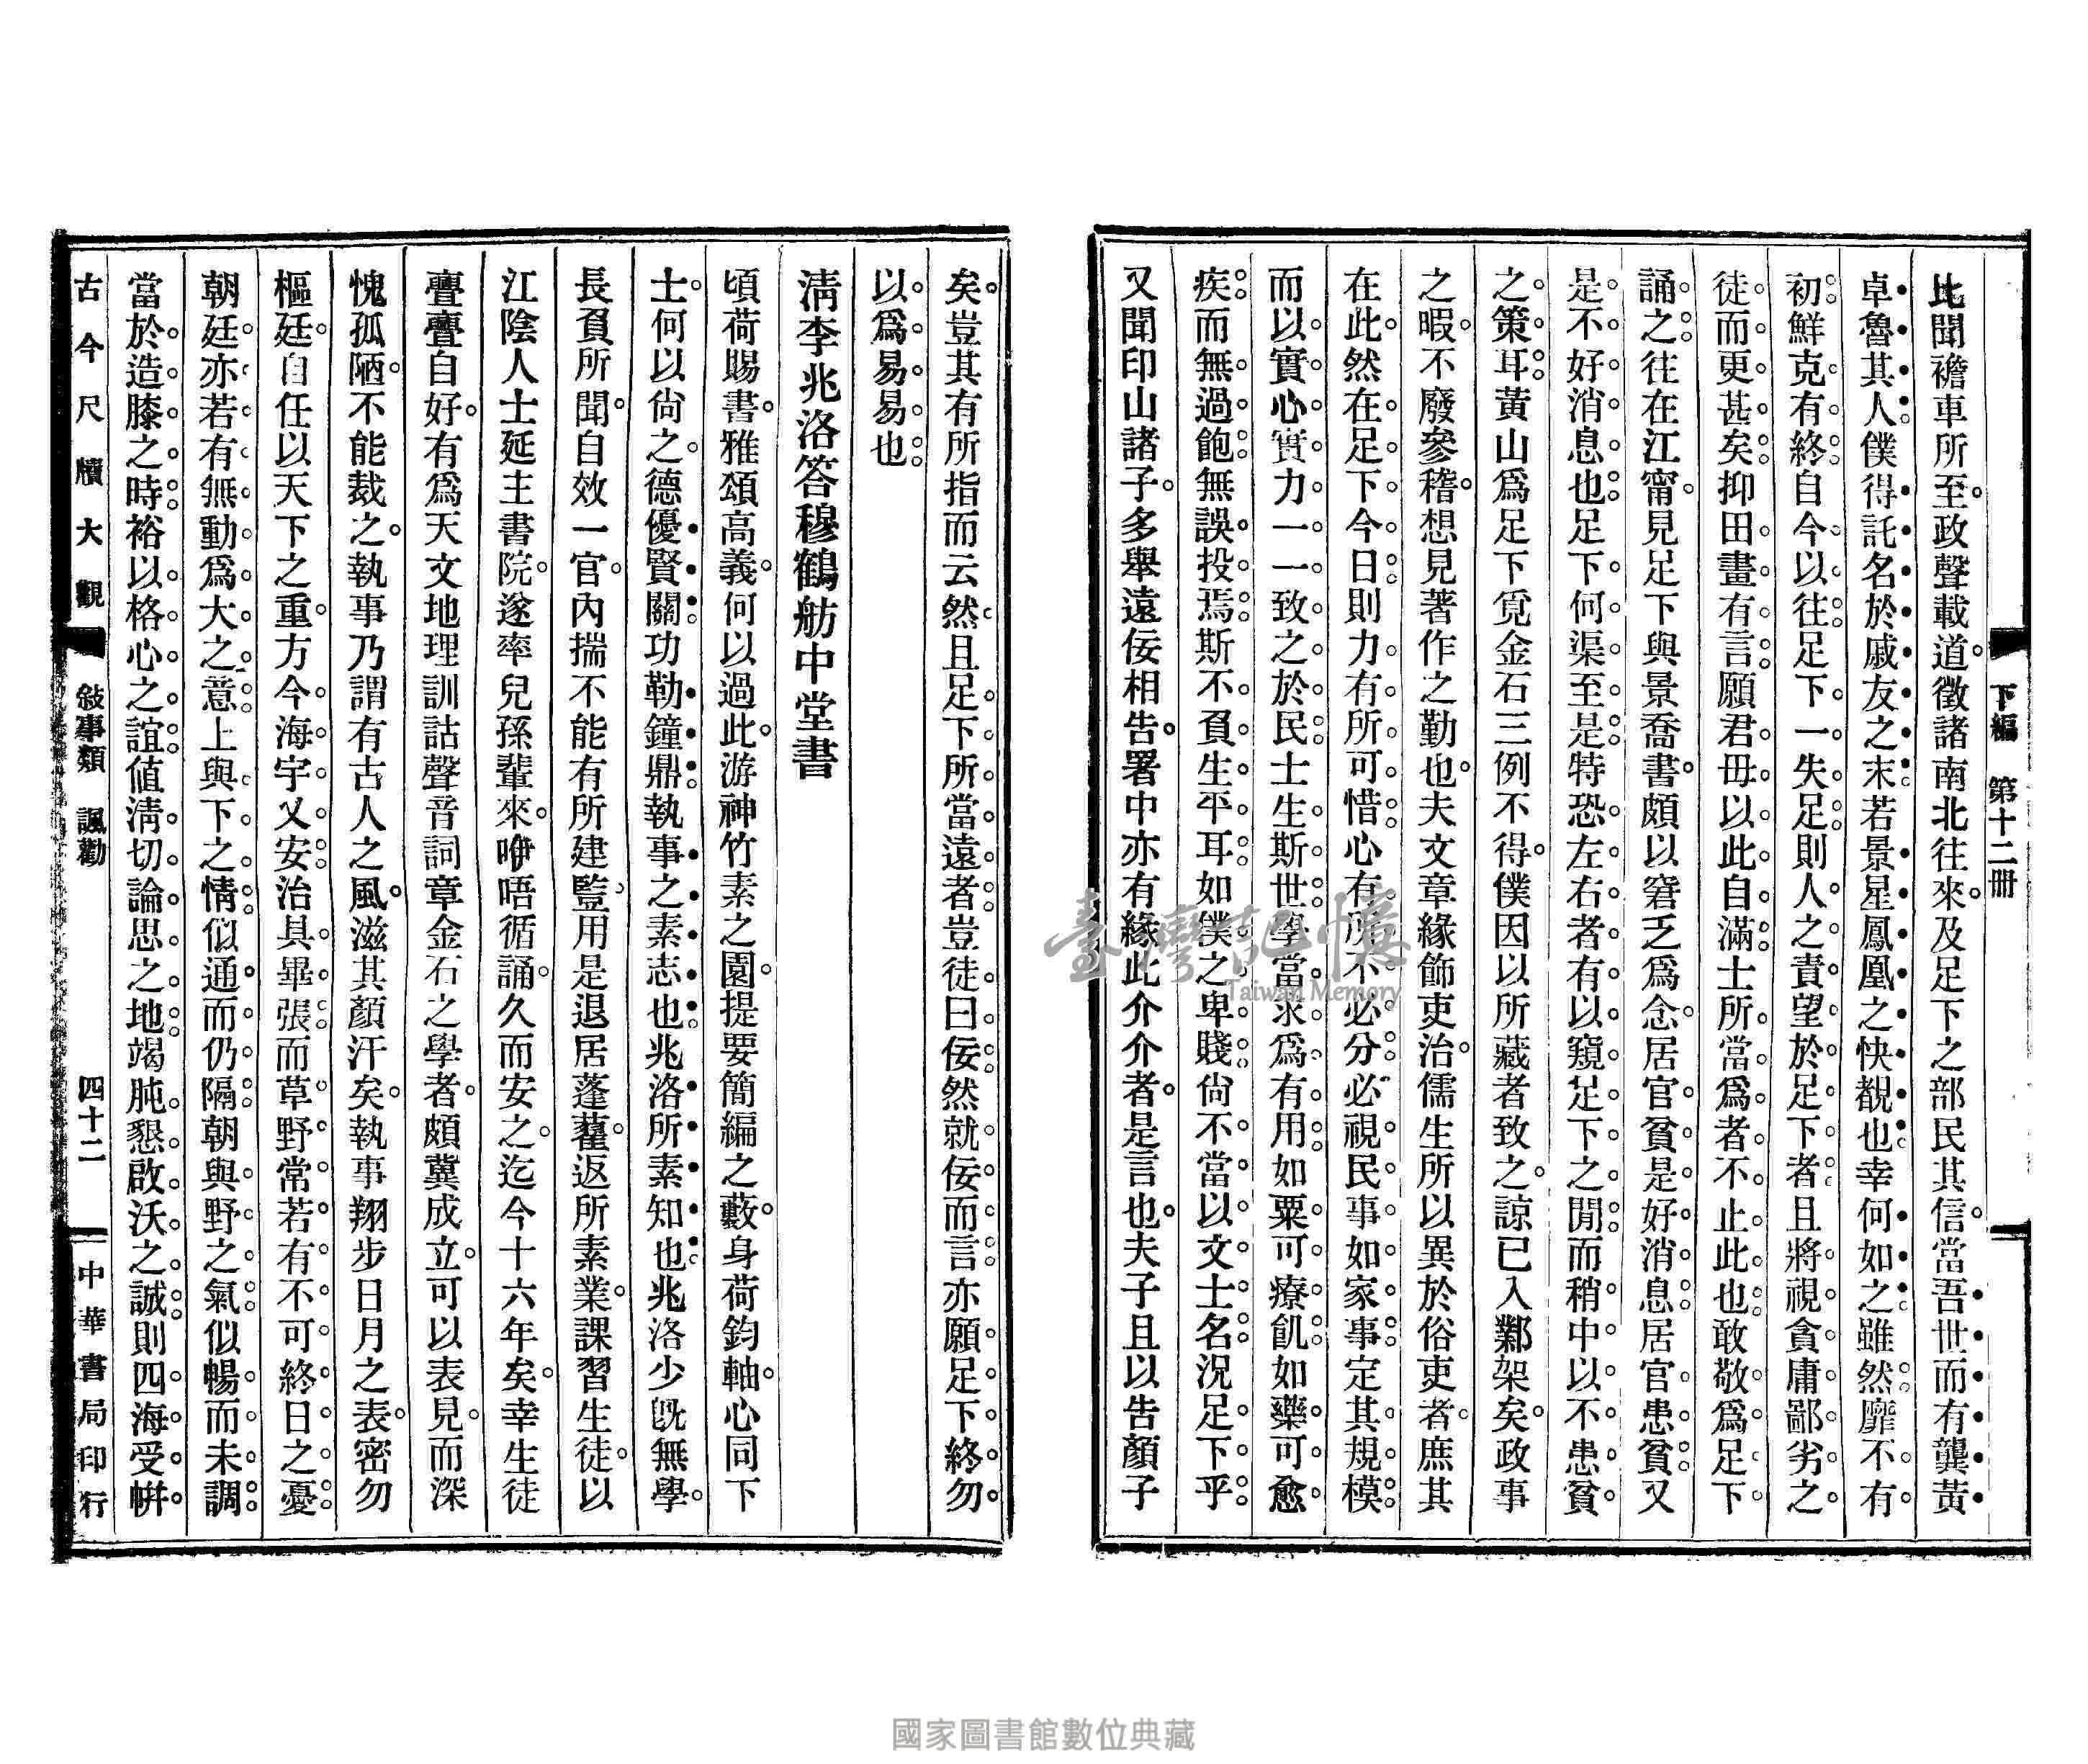 下編　第十二冊
比聞襜車所至政聲載道徵諸南北往來及足下之部民其信當吾世而有龔黃
卓魯其人僕得託名於戚友之末若景星鳳凰之快覩也幸何如之雖然靡不有
初鮮克有終自今以往足下一失足則人之責望於足下者且將視貪庸鄙劣之
徒而更甚矣抑田畫有言願君毋以此自滿士所當爲者不止此也敢敬爲足下
誦之往在江甯見足下與景喬書頗以窘乏爲念居官貧是好消息居官患貧又
是不好消息也足下何渠至是特恐左右者有以窺足下之閒而稍中以不患貧
之策耳黃山爲足下覓金石三例不得僕因以所藏者致之諒已入鄴架矣政事
之暇不廢參稽想見著作之勤也夫文章緣飾吏治儒生所以異於俗吏者庶其
在此然在足下今日則力有所可惜心有所不必分必視民事如家事定其規模
而以實心實力一一致之於民士生斯世學當求爲有用如粟可療飢如藥可愈
疾而無過飽無誤投焉斯不負生平耳如僕之卑賤尙不當以文士名況足下乎
又聞印山諸子多舉遠佞相告署中亦有緣此介介者是言也夫子且以告顏子
矣豈其有所指而云然且足下所當遠者豈徒曰佞然就佞而言亦願足下終勿
以爲易易也
清李兆洛答穆鶴舫中堂書
頃荷賜書雅頌高義何以過此游神竹素之園提要簡編之藪身荷鈞軸心同下
士何以尙之德優賢關功勒鐘鼎執事之素志也兆洛所素知也兆洛少旣無學
長負所聞自效一官內揣不能有所建豎用是退居蓬藋返所素業課習生徒以
江陰人士延主書院遂率兒孫輩來咿唔循誦久而安之迄今十六年矣幸生徒
亹亹自好有爲天文地理訓詁聲音詞章金石之學者頗冀成立可以表見而深
愧孤陋不能裁之執事乃謂有古人之風滋其顏汗矣執事翔步日月之表密勿
樞廷自任以天下之重方今海宇乂安治具畢張而草野常若有不可終日之憂
朝廷亦若有無動爲大之意上與下之情似通而仍隔朝與野之氣似暢而未調
當於造膝之時裕以格心之誼値淸切論思之地竭肫懇啟沃之誠則四海受帡
古今尺牘大觀　敍事類　諷勸　四十二　中華書局印行
臺灣記憶
Taiwan Memory
國家圖書館數位典藏